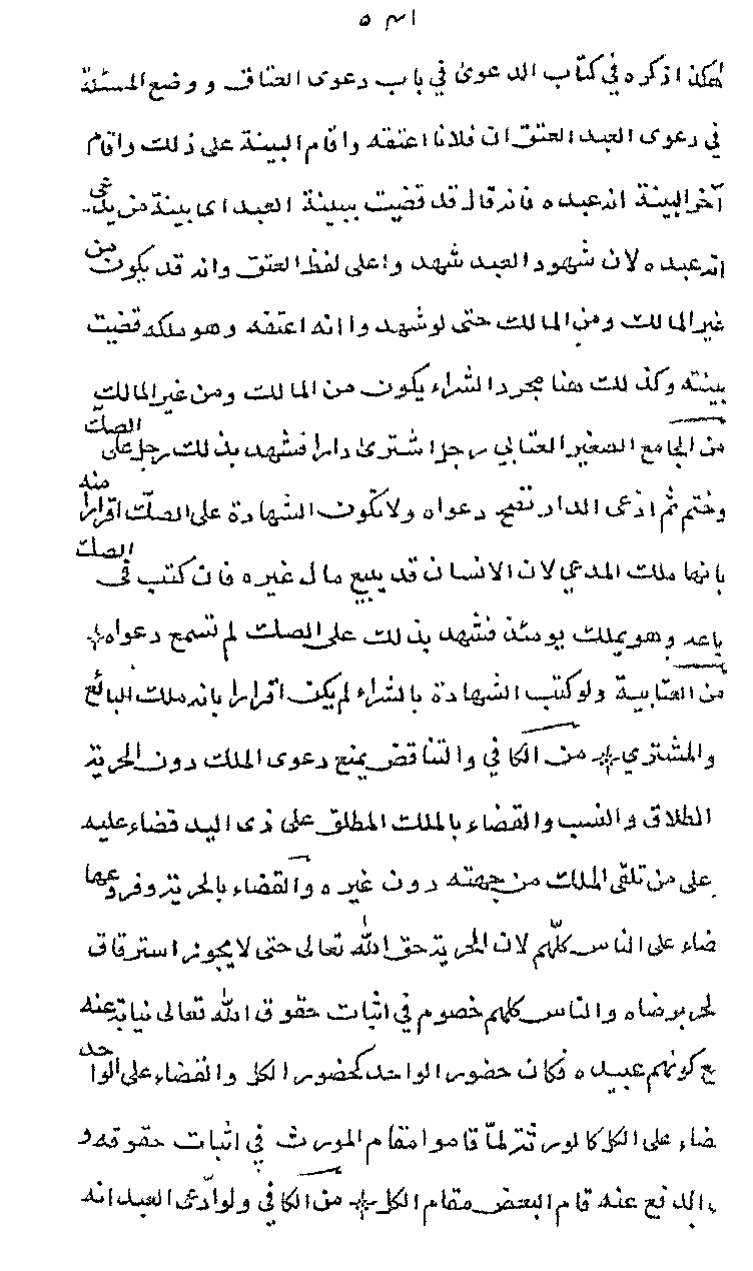 هكذا ذكره في كتاب الدعوى في باب دعوى العتاق ووضع المسئلة
في دعوى العبد العتق ان فلانا اعتقه واقام البينة على ذلك واقام
آخر البينة انه عبده فانه قال قد قضيت ببينة العبد اى بينة من يدعي
انه عبده لان شهود العبد شهدوا على لفظ العتق وانه قد يكون من
غير المالك ومن المالك حتى لو شهدوا انه اعتقه وهو ملكه قضيت
بينته وكذلك هنا مجرد الشراء يكون من المالك ومن غير المالك
من الجامع الصغير العتابي رجل اشترى دارا فشهد بذلك رجل على الصك
وختم ثم ادعى الدار تصح دعواه ولا تكون الشهادة على الصك اقرارا منه
بانها ملك المدعي لان الانسان قد يبيع مال غيره فان كتب في الصك
باعه وهو يملك يومئذ فشهد بذلك على الصك لم تسمع دعواه
من العتابية ولو كتب الشهادة بالشراء لم يكن اقرارا بانه ملك البائع
والمشتري من الكافي والتناقض يمنع دعوى الملك دون الحرية
الطلاق والنسب والقضاء بالملك المطلق على ذى اليد قضاء عليه
على من تلقى الملك من جهته دون غيره والقضاء بالحرية وفروعها
ضاء على الناس كلهم لان الحرية حق الله تعالى حتى لا يجوز استرقاق
لحر برضاه والناس كلهم خصوم في اثبات حقوق الله تعالى نيابة عنه
ع كونهم عبيده فكان حضور الواحد كحضور الكل والقضاء على الواحد
ضاء على الكل كالورثة لمّا قاموا مقام المورث في اثبات حقوقه و
الدفع عنه قام البعض مقام الكل من الكافي ولو ادّعى العبد انه